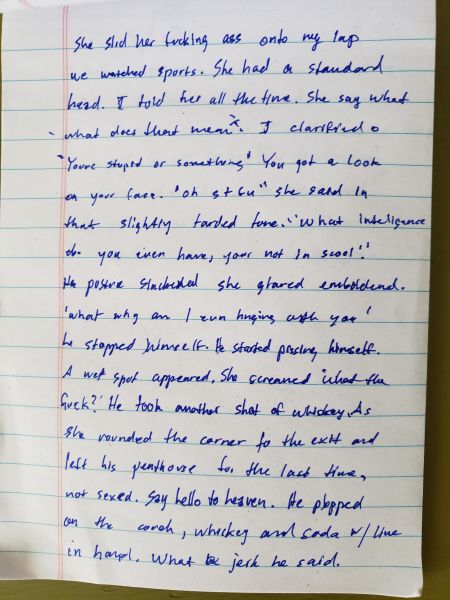 She slid her fucking ass onto my lap
we watched sports. She had a standard
head. I told her all the time. She say what
what does that mean? I clarified.
"Youre stupid or something" You got a look
on your face. "oh stfu" she said in
that slightly tarded tone. "What intelligence
do you even have, your not in scool"!
posture slackened she glared emboldend.
"what why am I even hnging with you"
he stopped himself. He started pissing himself.
A wet spot appeared. She screamed "what the
fuck?" He took another shot of whiskey. As
she rounded the corner to the exit and
left his penthouse for the last time,
not sexed. Say hello to heaven. He plopped
on the couch, whiskey and soda w/ lime
in hand. What a jerk he said.